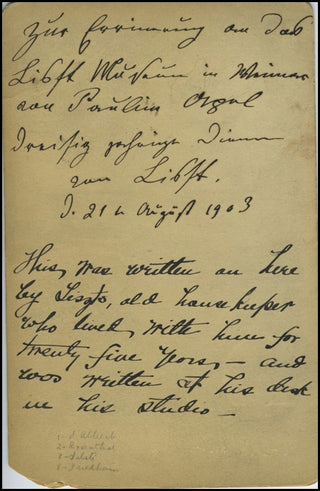 Zur Erinnerung an das
Lisft Museum in Weimar
von Pauline Apel
Dreisig jährige Dienerin
von Lisft.
d. 21 t August 1903
This, was written on here
by Liszts, old housekeeper
who lived, with him for
twenty five years, – and
was written at his desk
in his studio –
1 - d'Albert
2 - Rosenthal
3 -
4 - Friedheim